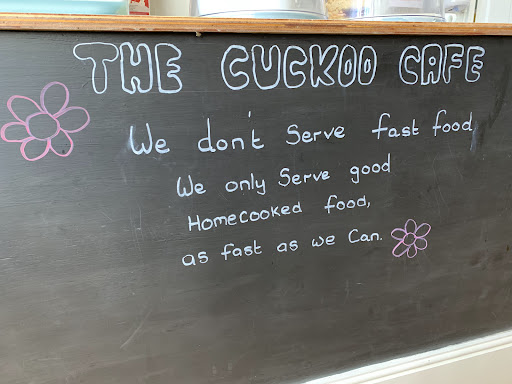 THE CUCKOO CAFE
We don't Serve fast food
We only Serve good
Homecooked food,
as fast as we Can.